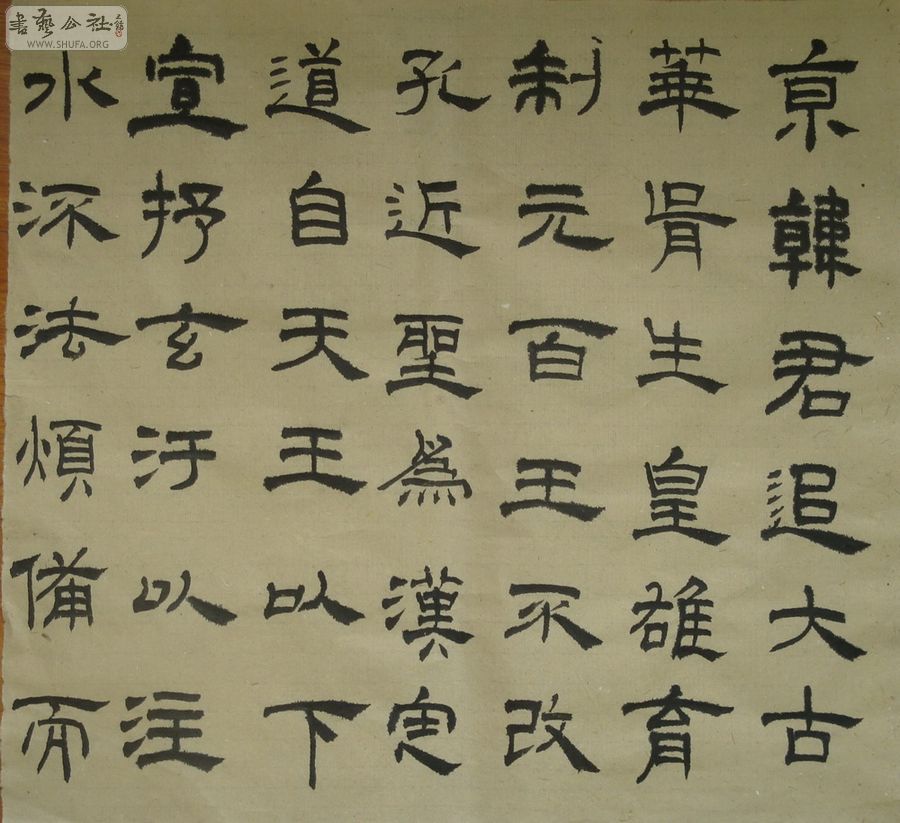 京韓君追大古
華胥生皇雄育
制元百王不改
孔近聖為漢定
道自天王以下
宣抒玄汙以注
水流法煩備而
書藝公社
WWW.SHUFA.ORG